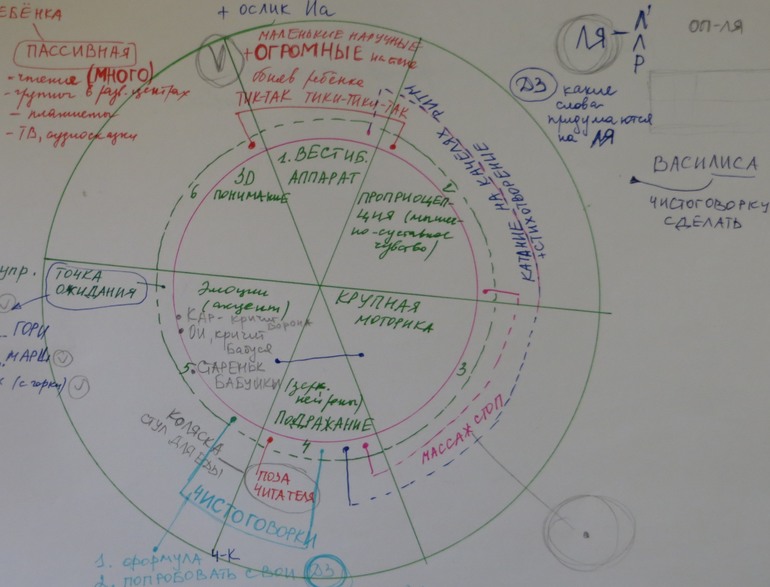 + ослик Иа
ЕБЁНКА
ПАССИВНАЯ
- чтение (МНОГО)
- группы в разв. центрах
- планшеты
- ТВ, аудиосказки
МАЛЕНЬКИЕ НАУЧНЫЕ
+ОГРОМНЫЕ
ребёнка
ТИК-ТАК ТИКИ-ТИКИ-ТАК
РИТМ
КАТАНИЕ НА КАЧЕЛЯХ
+СТИХОТВОРЕНИЕ
ЛЯ
Л'
Л
Р
ОП-ЛЯ
ДЗ какие
слова
придумаются
на ЛЯ
ВАСИЛИСА
ЧИСТОГОВОРКУ
СДЕЛАТЬ
1. ВЕСТИБ.
АППАРАТ
2
ПРОПРИОЦЕП-
ЦИЯ (мышеч-
но-суставное
чувство)
6
3D
ПОНИМАНИЕ
упр.
ТОЧКА
ОЖИДАНИЯ
ГОРИ
МАРШ
(с горки)
Эмоции
(акцент)
КАР - кричит ворона
ОЙ, кричит
Бабуся
5.
СТАРЕНЬК
БАБУШКИ
КРУПНАЯ
МОТОРИКА
3
(зерк.
нейроны)
ПОДРАЖАНИЕ
4
МАССАЖ СТОП
КОЛЯСКА
СТУЛ ДЛЯ ЕДЫ
ПОЗА
ЧИТАТЕЛЯ
ЧИСТОГОВОРКИ
Ч-К
1. формула
2. ПОПРОБОВАТЬ СВОИ ДЗ